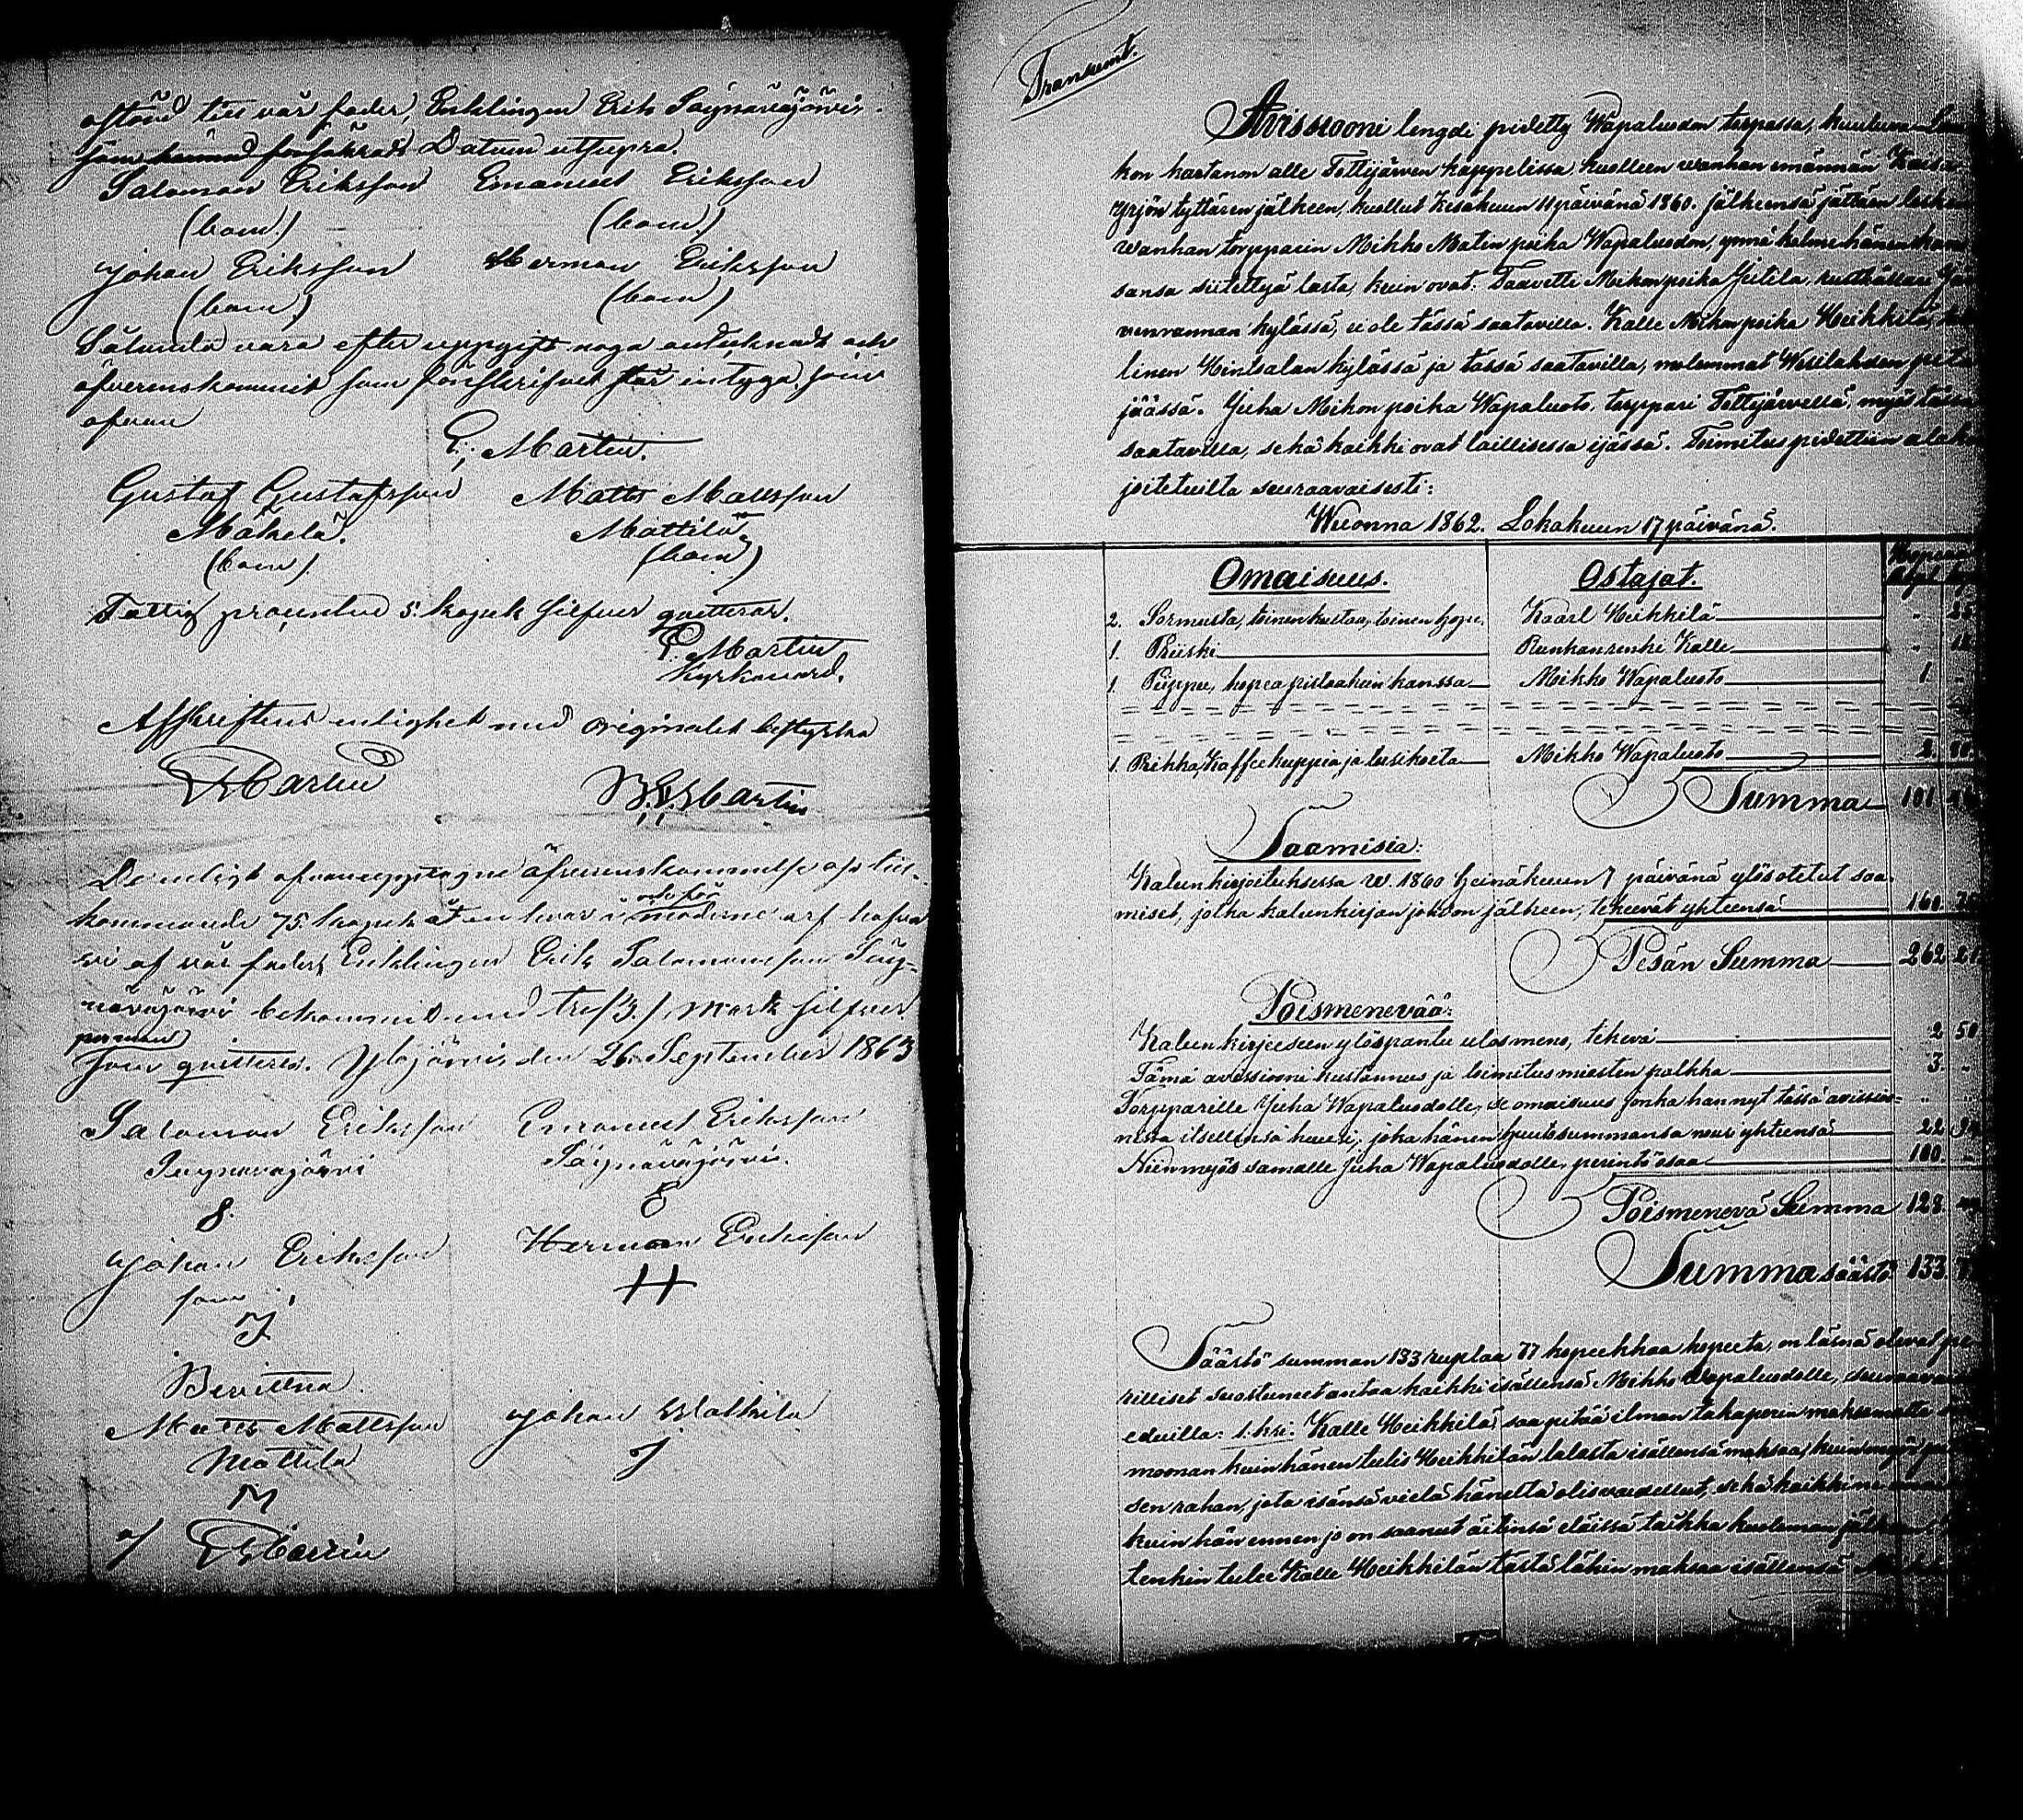 afstånd till vår fader, Enklingen Erik Säynäväjärvi
som hämnd försäkrads Datum utsupra.
Salomon Eriksson Emanuel Eriksson
(bom.) (bom.)
Johan Eriksson Herman Eriksson
(bom) (bom)
Sålunda vara efter uppgift noga antecknadt och
öfverenskommit som förestkrifvet står intyga som
ofvan
E. Martin.
Gustaf Gustafsson Matts Mattsson
Mäkelä. Mattila
(bom). (bom)
Fattig procenten 5 kopek silfver quitterar.
E. Martin
Kyrkovard.
Afskriftens enlighet med originalet bestyrka
E Martin B. E. Martin
De enligt ofvanuppdragne öfverenskommelse oss till-
kommande 75. kopek åt en hvar i möderne arf hafva
vi af vår fader, Enklingen Erik Salomonsson Säy-
näväjärvi bekommit med tre /3./ Mark silfver
som quitteras. Ylöjärvi den 26 September 1863
Salomon Eriksson Emanuel Eriksson
Säynäväjärvi Säynäväjärvi.
S. E
Johan Eriksson Herman Eriksson
J H
Bevittna
Matts Mattsson Johan Mattila
Mattila J
M
af E Martin
Transumt.
Avissiooni lengdi pidetty Wapaluodon torpassa, kuuluva
kon kartanon alle Tottijärven kappelissa, kuolleen wanhan emännän Kaisa
Yrjön tyttären jälkeen, kuollut Kesäkuun 11 päivänä 1860. jälkeensä jättäen lesken
wanhan torpparin Mikko Matin poika Wapaluodon, ynnä kolme hänen kans
sansa siitettyä lasta, kuin ovat: Taavetti Mikon poika Jutila, rusthållari
venrannan kylässä, ei ole tässä saatavilla. Kalle Mikon poika Heikkilä,
linen Hintsalan kylässä ja tässä saatavilla, molemmat Wesilahden pitä
jäässä. Juha Mikon poika Wapaluoto, torppari Tottijärvellä, myös tässä
saatavilla, sekä kaikki ovat laillisessa ijässä. Toimitus pidettiin alakir
joitetuilta seuraavaisesti:
Wuonna 1862. Lokakuun 17 päivänä.
Omaisuus. Ostajat.
2. Sormusta, toinen kultaa, toinen hope. Kaarl Heikkilä " 25
1. Priiski Runkanrenki Kalle "
1. Piippu, hopea pislaakein kanssa Mikko Wapaluoto 1 "
1. Prikka, Kaffeekuppia ja lusikoeta Mikko Wapaluoto 2
Summa 101
Saamisia:
Kalunkirjoituksessa w. 1860 heinäkuun 7 päivänä ylösotetut saa-
miset, jotka kalunkirjan johdon jälkeen, tekevät yhteensä 160.
Pesän Summa 262 21
Poismenevää:
Kalunkirjeeseen ylöspantu ulosmeno, tekevä 2 50
Tämä avissiooni kustannus ja toimitusmiesten palkka 3. "
Torpparille Juha Wapaluodolle, se omaisuus jonka han nyt tässä avissioo= " "
nissa itsellensä huusi, joka hänen huutosummansa nousi yhteensä 22
Niin myös samalle Juha Wapaluodolle, perintö osaa 100. "
Poismenevä Summa 128.
Summa säästö 133.
Säästö summan 133 ruplaa 77 kopeekkaa hopeeta, on läsnä olevat pe
rilliset suostuneet antaa kaikki isällensä Mikko Wapaluodolle, seuraavan
eduilla: 1:ksi. Kalle Heikkilä saa pitää ilman takaperin maksumatta
moonan kuin hänen tulis Heikkilän talosta isällensä maksaa, kuin myös
sen rahan, jota isänsä vielä häneltä olis vaadellut, sekä kaikki ne
kuin hän ennen jo on saanut äitinsä eläissä taikka kuoleman jälkeen
tenkin tulee Kalle Heikkilän tästä lähin maksaa isällensä